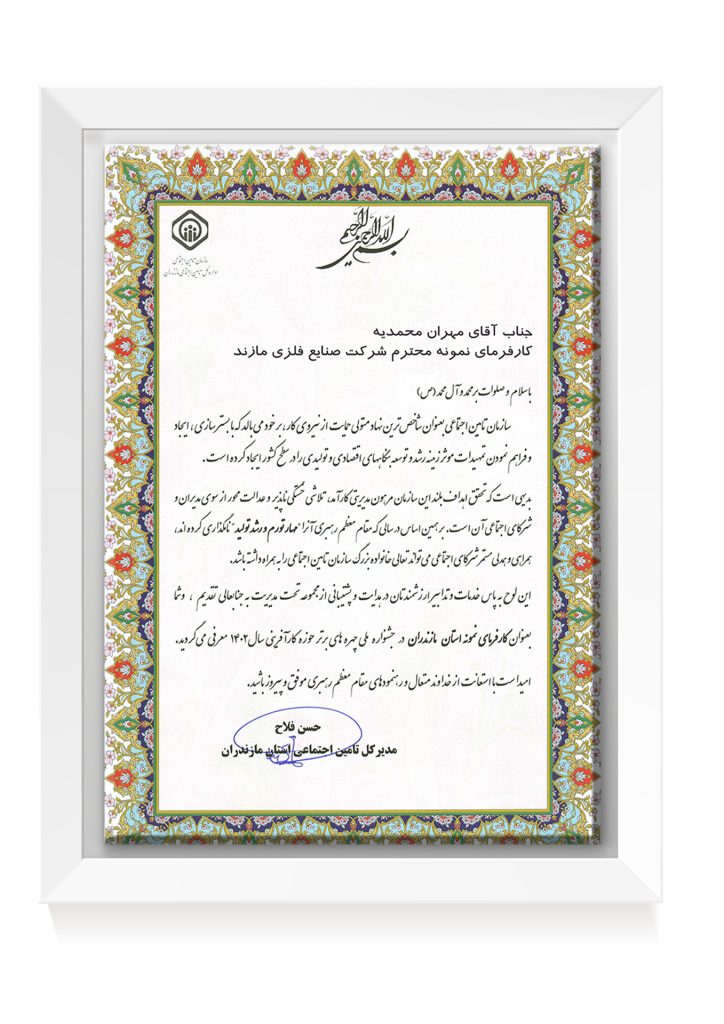 بسم الله الرحمن الرحیم
سازمان تامین اجتماعی
اداره کل تامین اجتماعی مازندران
جناب آقای مهران محمدیه
کارفرمای نمونه محترم شرکت صنایع فلزی مازند
با سلام و صلوات بر محمد و آل محمد (ص)
سازمان تامین اجتماعی بعنوان شاخص ترین نهاد متولی حمایت از نیروی کار، بر خود می بالد که با بستر سازی، ایجاد
و فراهم نمودن تمهیدات موثر زمینه رشد و توسعه بنگاههای اقتصادی و تولیدی را در سطح کشور ایجاد کرده است.
بدیهی است که تحقق اهداف بلند این سازمان مرهون مدیریتی کارآمد، تلاشی خستگی ناپذیر و عدالت محور از سوی مدیران و
شرکای اجتماعی آن است. بر همین اساس در سالی که مقام معظم رهبری آنرا "مهار تورم و رشد تولید" نامگذاری کرده اند،
همراهی و همدلی مستمر شرکای اجتماعی می تواند تعالی خانواده بزرگ سازمان تامین اجتماعی را به همراه داشته باشد.
این لوح به پاس خدمات و تدابیر ارزشمندتان در هدایت و پشتیبانی از مجموعه تحت مدیریت به جنابعالی تقدیم ، و شما
بعنوان کارفرمای نمونه استان مازندران در جشنواره ملی چهره های برتر حوزه کارآفرینی سال ۱۴۰۲ معرفی می گردید.
امید است با استعانت از خداوند متعال و رهنمودهای مقام معظم رهبری موفق و پیروز باشید.
حسن فلاح
مدیرکل تامین اجتماعی استان مازندران